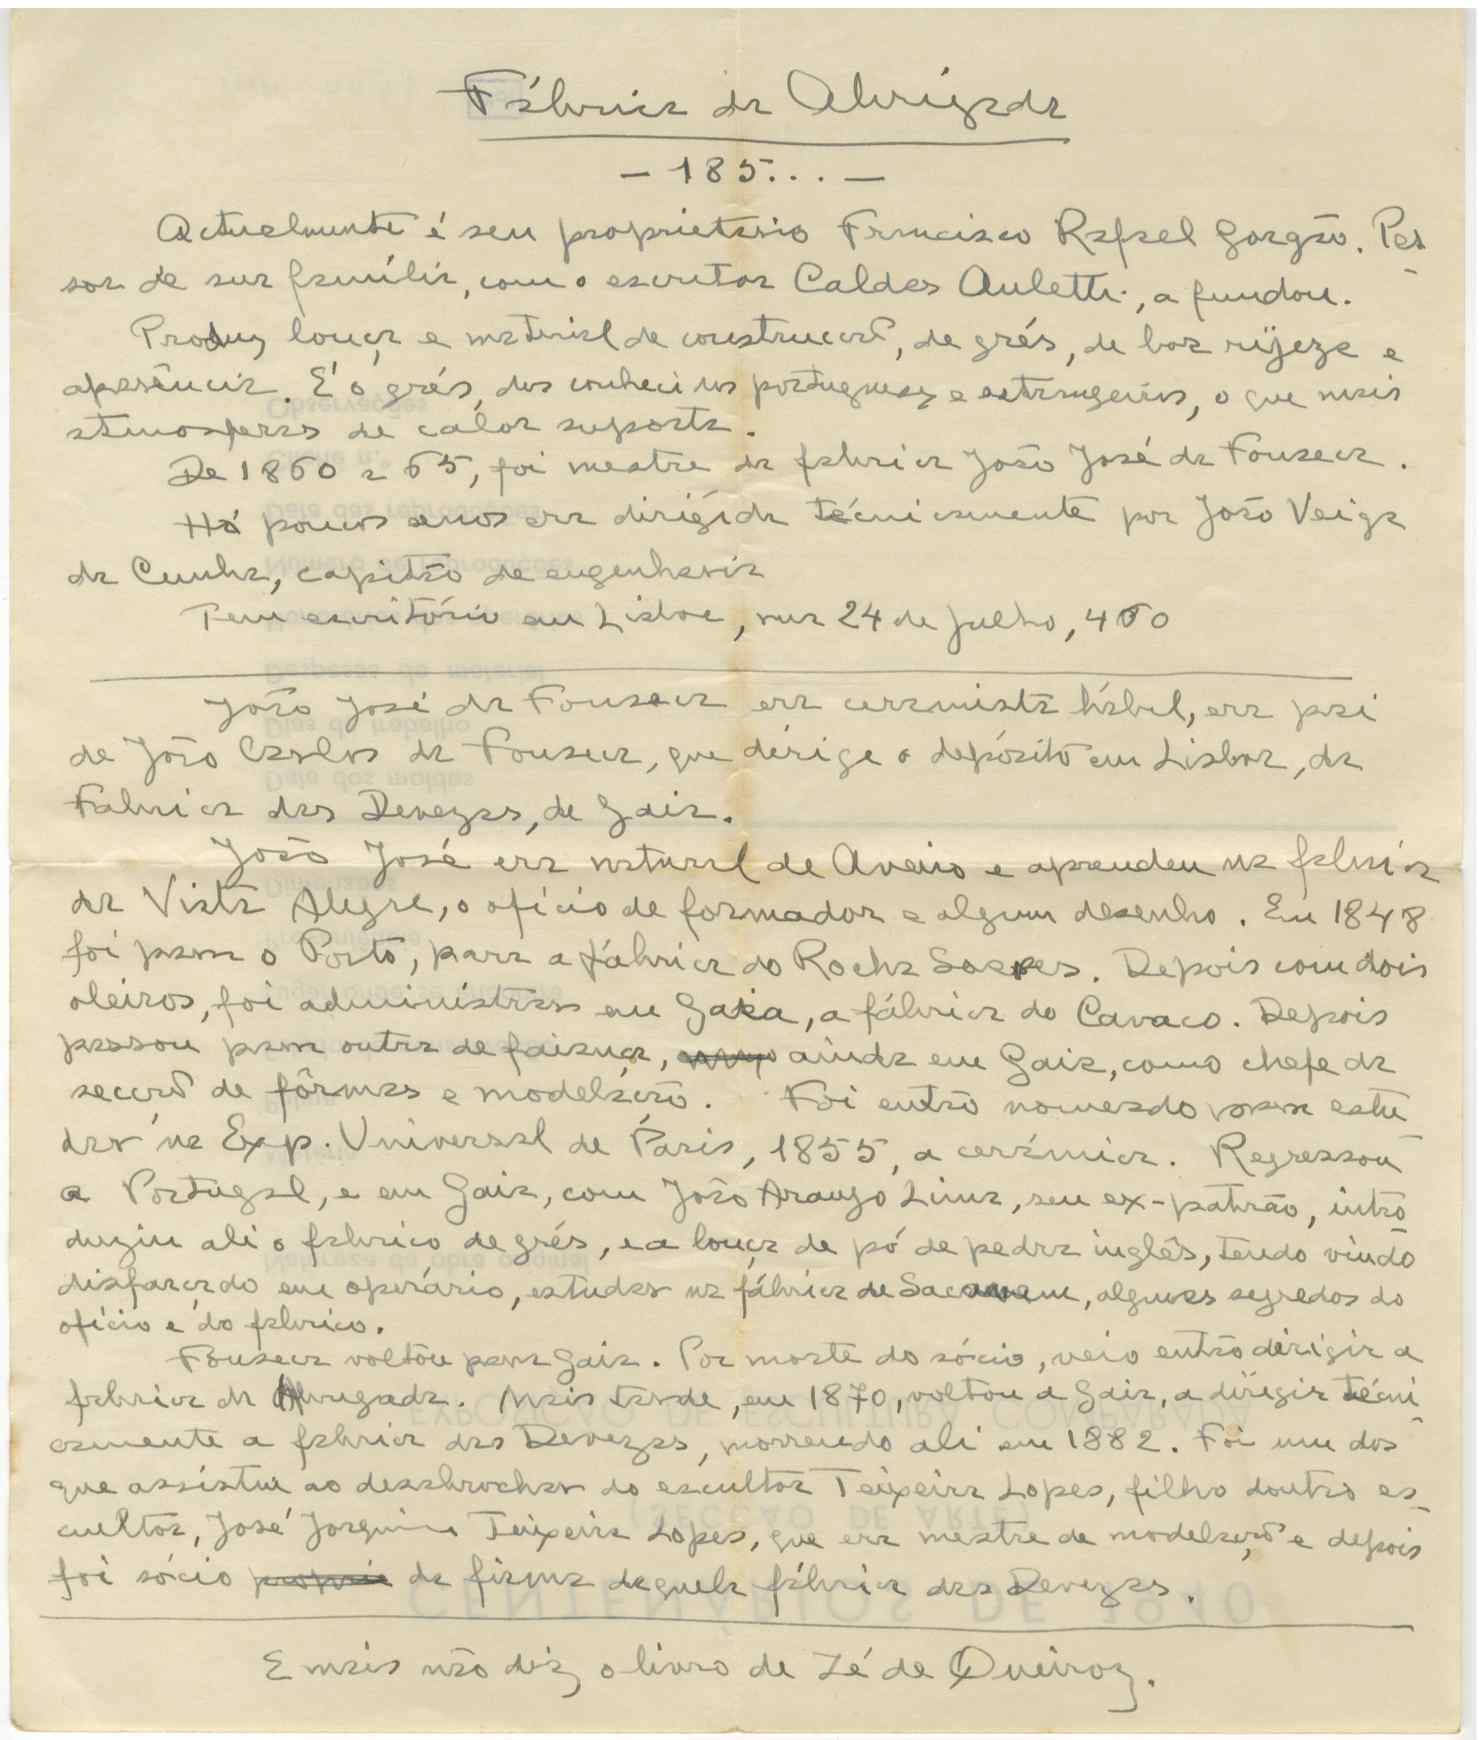 Fábrica da Abrigada
- 185... -
Actualmente é seu proprietario Francisco Rafael Gorgão. Pes
soa de sua família, com o escritor Caldas Aulette, a fundou.
Produz louça e material de construcção, de grés, de boa rijeza e
aparência. É o grés, dos conhecidos portuguezes e estrangeiros, o que mais
atmosferas de calôr suporta.
De 1860 a 65, foi mestre da fabrica João José da Fonseca.
Há poucos anos era dirigida técnicamente por João Veiga
da Cunha, capitão de engenharia
Tem escritório em Lisboa, rua 24 de Julho, 460
João José da Fonseca era ceramista hábil, era pai
de João Carlos da Fonseca, que dirige o depósito em Lisboa, da
Fabrica das Devezas, de Gaia.
João José era natural de Aveiro e aprendeu na fabrica
da Vista Alegre, o ofício de formador e algum desenho. Em 1848
foi para o Porto, para a fábrica do Rocha Soares. Depois com dois
oleiros, foi administrar em Gaia, a fábrica do Cavaco. Depois
passou para outra de faiança, ainda em Gaia, como chefe da
secção de fôrmas e modelação. Foi então nomeado para estu
dar na Exp. Universal de Paris, 1855, a cerámica. Regressou
a Portugal, e em Gaia, com João Araujo Lima, seu ex-patrão, intro
duziu ali o fabrico de grés, e a louça de pó de pedra inglês, tendo vindo
disfarçado em operário, estudar na fábrica de Sacavem, algumas segredos do
ofício e do fabrico.
Fonseca voltou para Gaia. Por morte do sócio, veio então dirigir a
fabrica da Abrigada. Mais tarde, em 1870, voltou a Gaia, a dirigir técni
camente a fabrica das Devezas, morrendo ali em 1882. Foi um dos
que assistiu ao desabrochar do escultor Teixeira Lopes, filho doutro es
cultor, José Joaquim Teixeira Lopes, que era mestre de modelação e depois
foi sócio da firma daquela fábrica das Devezas.
E mais não diz o livro de Zé de Queiroz.